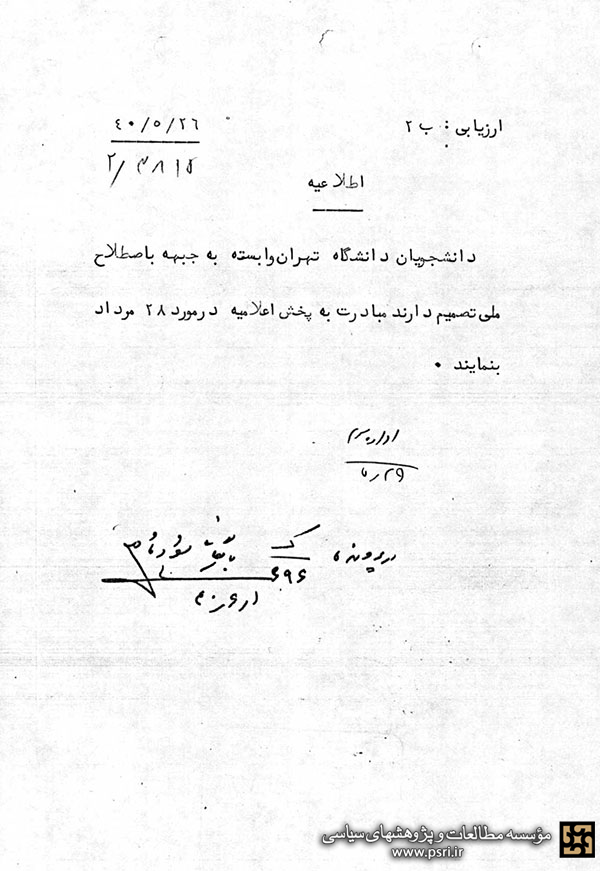 ارزیابی : ب ۲
۴۰/۵/۲۶
اطلاعیه
دانشجویان دانشگاه تهران وابسته به جبهه باصطلاح
ملی تصمیم دارند مبادرت به پخش اعلامیه درمورد ۲۸ مرداد
بنمایند .
در پرونده
مؤسسه مطالعات و پژوهشهای سیاسی
www.psri.ir